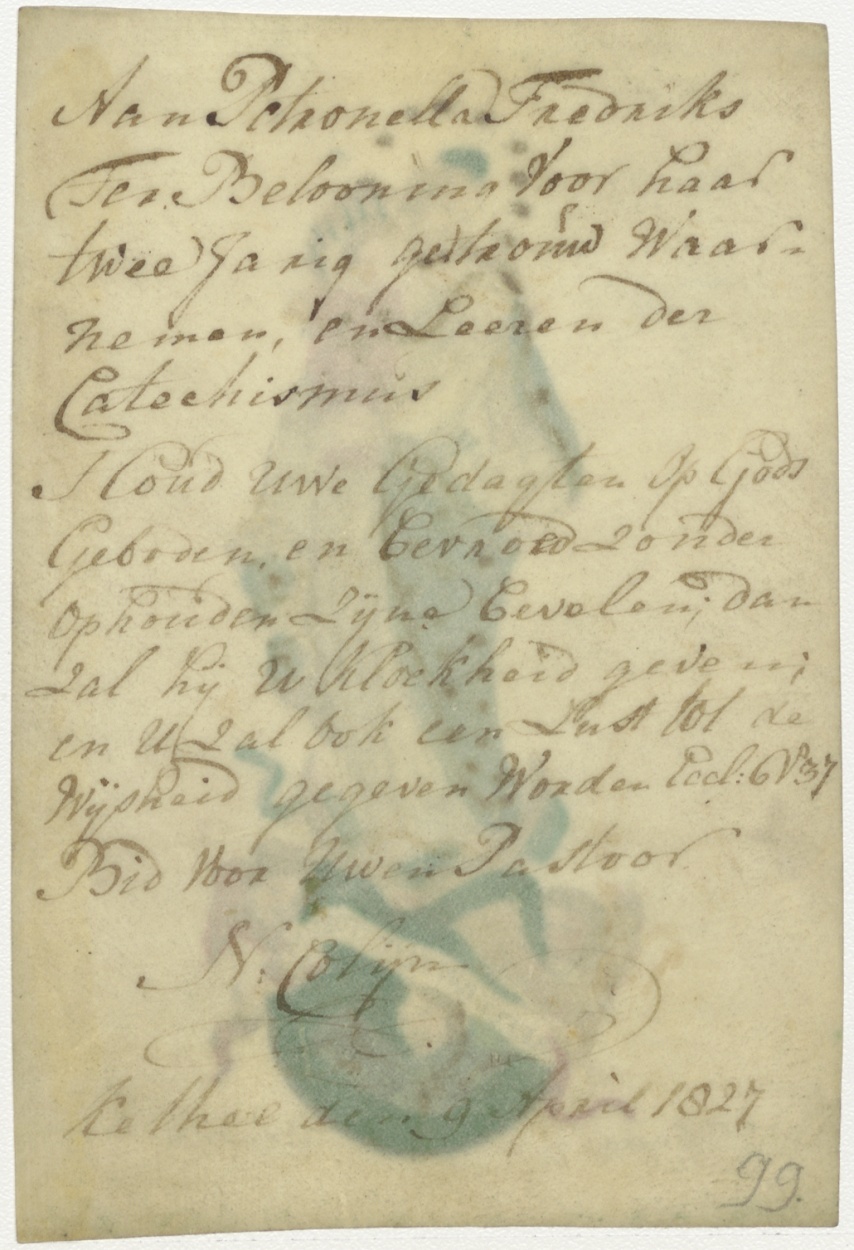 Aan Petronella Fredriks
Ter Belooning Voor haar
twee Jarig getrouw Waar-
nemen, en Leeren der
Catechismus
Houd uwe Gedagten op Gods
Geboden, en
ophouden Zijne Bevelen; dan
zal hij u Kloekheid geven;
en U zal ook een Lust tot de
Wijsheid gegeven Worden Eccl: 6 V 37
Bid voor Uwen Pastoor
N. Colijn
Kethel den 9 April 1827
99.